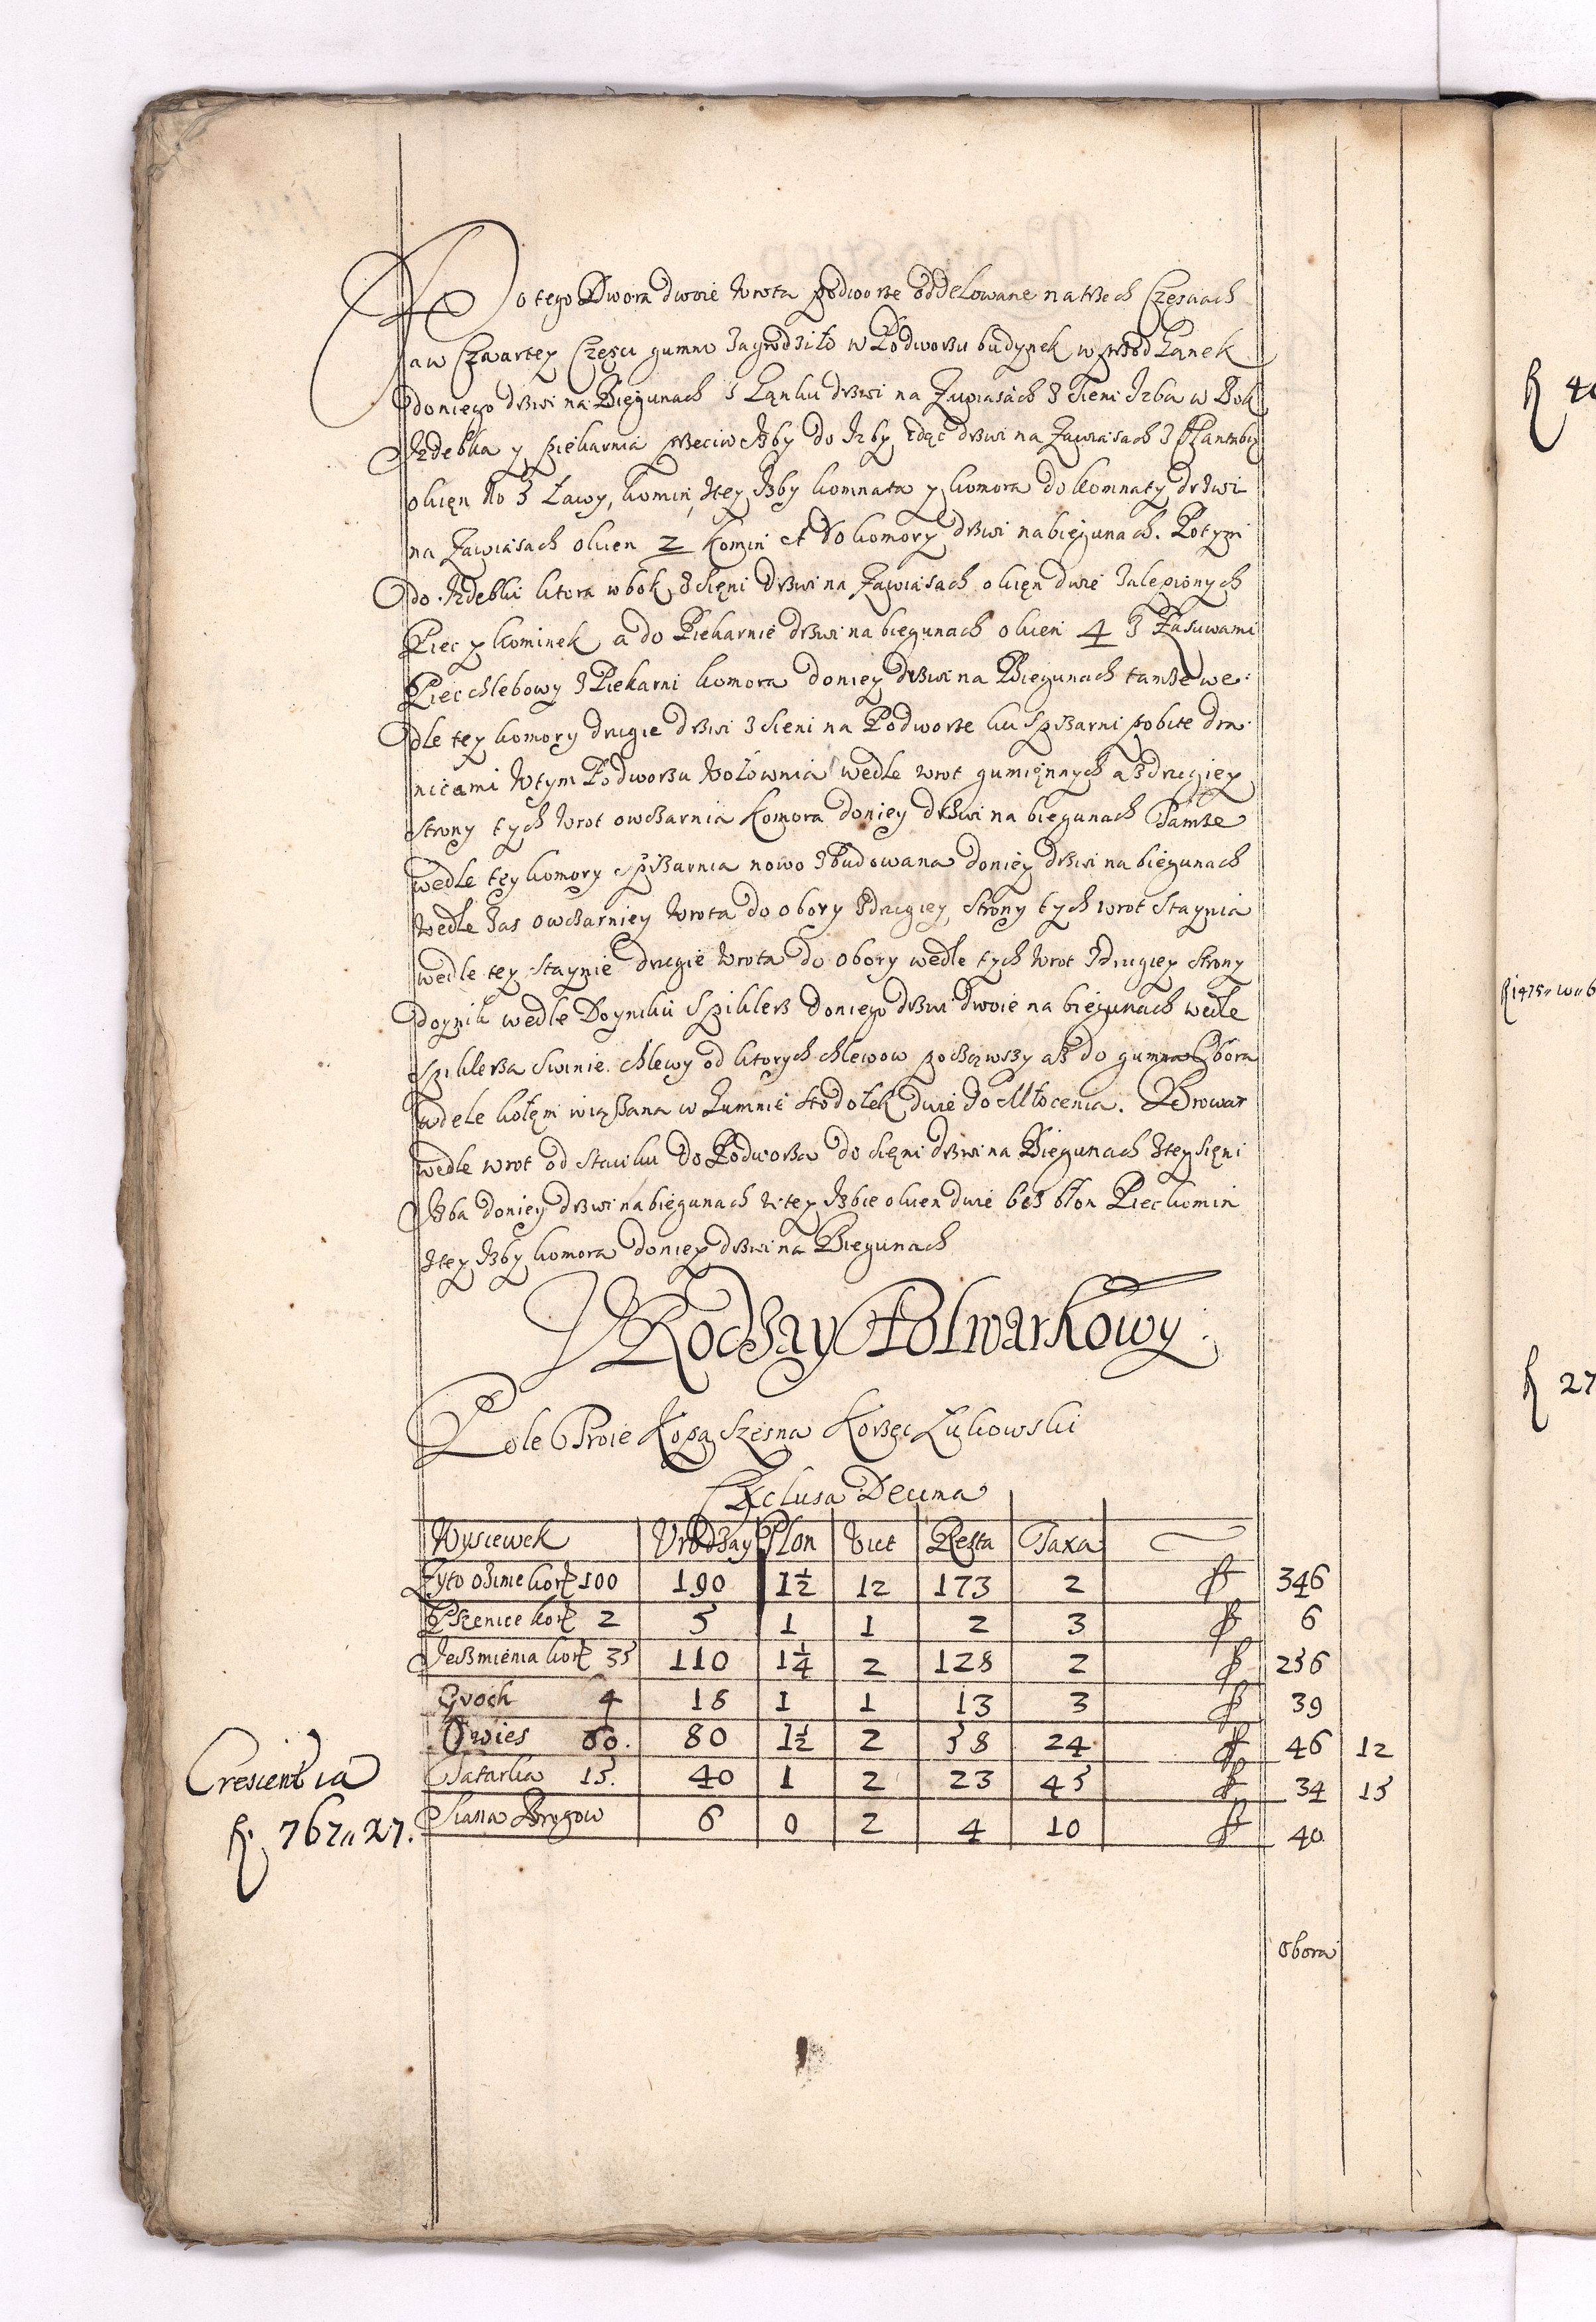 Do tego Dwora dwoie Wrota podworze oddelowane na trzech Częsciach
a w Czwartey Częsci gumno zagrodziło w Podworzu budynek w przod Ganek
do niego drzwi na Biegunach z Gąnku drzwi na Zawiasach z Sieni Izba w Bok
Izdebka y piekarnia przeciw Izby do Izby idąc drzwi na Zawiasach z
okien No 3 Ławy, komin, ztey Izby komnata y komora do komnaty drzwi
na Zawiasach okien 2 Komin et do komory drzwi na biegunach. Potym
do Izdebki ktora w bok z Sięni drzwi na Zawiasach okięn dwie zalepionych
Piec y kominek a do Piekarnie drzwi na biegunach okien 4 z Zasuwami
Piec chlebowy z Piekarni komora do niey drzwi na Biegunach tamze we:
dle tey komory drugie drzwi z sieni na Podworze ku Spizarni pobite dra:
nicami W tym Podworzu Wołownia wedle wrot gumięnnych a z drugiey
strony tych wrot owczarnia Komora do niey drzwi na biegunach Tamze
wedle tey komory spizarnia nowo zbudowana do niey drzwi na biegunach
Wedle zas owczarniey Wrota do obory z drugiey strony tych wrot Staynia
wedle tey Staynie drugie wrota do obory wedle tych wrot z drugiey strony
doynik wedle Doyniku Spiklerz do niego drzwi dwoie na biegunach wedle
spiklerza Swinie chlewy od ktorych chlewow począwszy az do gumna Obora
w dele kołęm wiązana w Gumnie stodołek dwie do Młocenia. Browar
wedle wrot od Stawku do Podworza do sięni drzwi na Biegunach z tey sięni
Izba do niey drzwi na biegunach w tey Izbie okien dwie bez błon Piec komin
z tey Izby komora do niey drzwi na Biegunach
Vrodzay Folwarkowy.
Pole Troie Kopa Szesna Korzec Łukowski
Exclusa Decima
Wysiewek Vrodzay Plon Vict Resta Taxa
Zyto ozime korz 100 190 1½ 12 173 2 fl 346
Pszenice korz 2 5 1 1 2 3 fl 6
Jeczmienia korz 35 110 1¼ 2 128 2 fl 256
Groch 4 18 1 1 13 3 fl 39
Owies 60. 80 1½ 2 58 24 fl 46 12
Tatarka 15. 40 1 2 23 45 fl 34 15
Siana Brogow 6 0 2 4 10 fl 40
Crescientia
fl. 767 27.
Obora